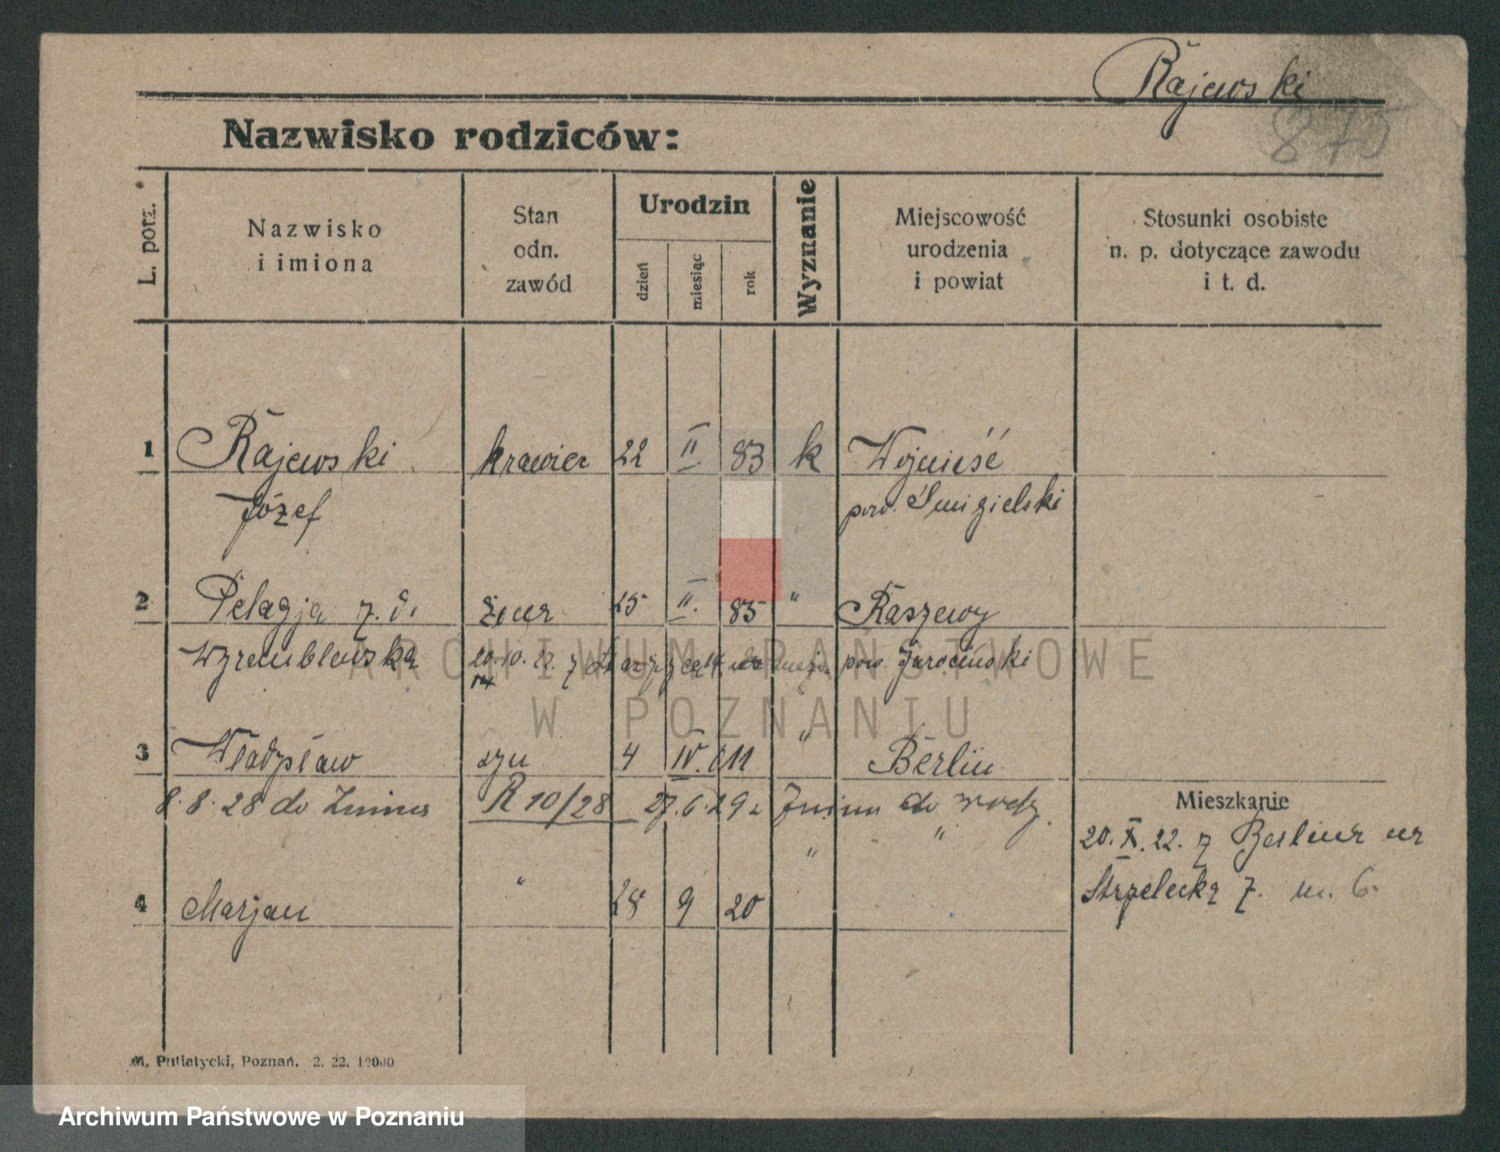 Rajewski
870
Nazwisko rodziców:
L. porz.
Nazwisko
i imiona
Stan
odn.
zawód
Urodzin
dzień
miesiąc
rok
Wyznanie
Miejscowość
urodzenia
i powiat
Stosunki osobiste
n. p. dotyczące zawodu
i t. d.
1 Rajewski krawiec 22 II 83 k Wojnieść
Józef pow. Śmigielski
2 Pelagja z. d. żona 25 II. 85 " Raszewy
Wyremblewska 20.10.22 z pow. Jarociński
3 Władysław syn 4 IV. 11 " Berlin
8.8.28 do R 10/28 27.6.29 do
Mieszkanie
20. X. 22. z Berlina na
" "
Strzelecką 7. m. 6.
4 Marjan " 28 9 20
M. Putiatycki, Poznań. 2. 22. 10000
ARCHIWUM PAŃSTWOWE
W POZNANIU
Archiwum Państwowe w Poznaniu